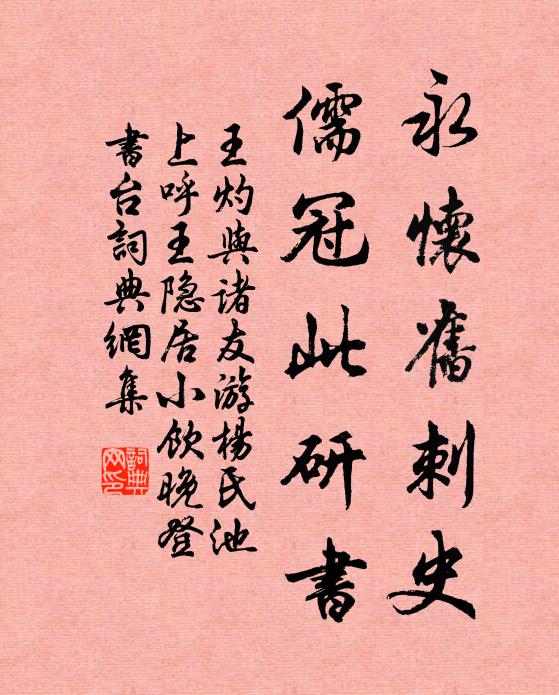 永懷舊刺史
儒冠此研書
王灼與諸友游楊氏池
上呼王隐居小飲晚登
書台詞典網集
詞典网印